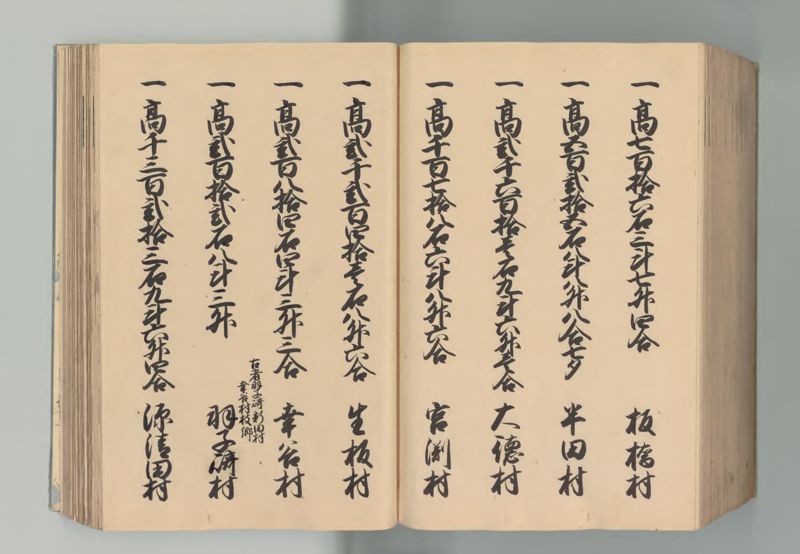 一 高七百拾六石三斗七升四合 板橋村
一 高五百弐拾六石八斗八升八合七夕 半田村
一 高弐千六百拾壱石九斗六升壱合 大徳村
一 高千百七拾八石六斗八升六合 宮渕村
一 高弐千弐百四拾壱石八升六合 生板村
一 高弐百八拾四石四斗三升三合 幸谷村
古者羽子崎新田村
幸谷村枝郷
一 高弐百拾弐石八斗三升 羽子崎村
一 高千三百弐拾三石九斗六升四合 源清田村